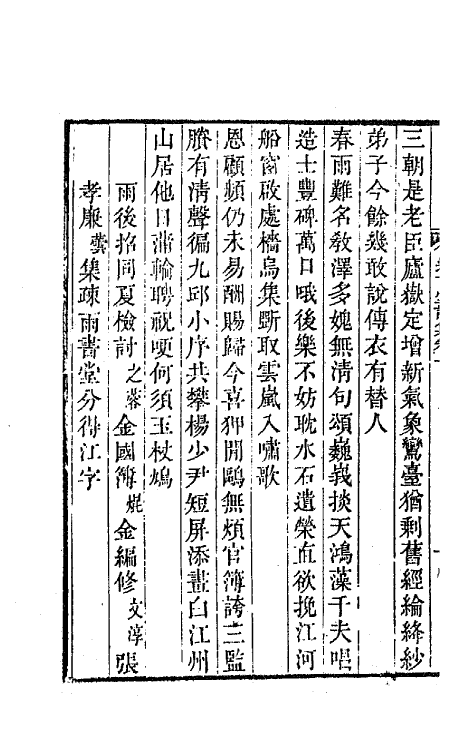 三朝是老臣廬嶽定增新氣象鸞臺猶剩舊經綸絳紗
弟子今餘幾敢說傳衣有替人
春雨難名敎澤多媿無淸句頌巍峩掞天鴻藻千夫唱
造士豐碑萬口哦後樂不妨耽水石遺榮直欲挽江河
船窗啟處檣烏集斷取雲嵐入嘯歌
恩顧頻仍未易酬賜歸今喜狎閒鷗無煩官簿誇三監
賸有淸聲徧九邱小序共攀楊少尹短屛添畫白江州
山居他日蒲輪聘祝哽何須玉杖鳩
雨後招同夏檢討之蓉金國簿焜金編修文淳張
孝廉雲集疎雨書堂分得江字